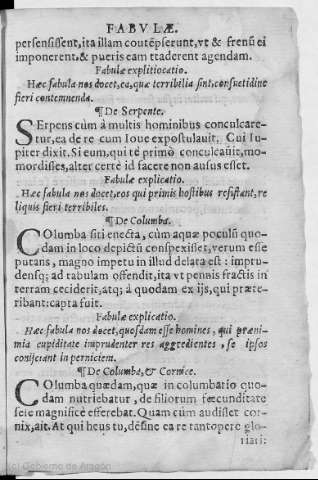 FABVLÆ.
persensissent, ita illam coutēpserunt, vt & frenū ei
imponerent, & pueris eam ttaderent agendam.
Fabulæ explitiocatio.
Hæc fabula nos docet, ea, quæ terribilia sint, consuetidine
fieri contemnenda.
¶De Serpente.
SErpens cùm à multis hominibus conculcare-
tur, ea de re cum Ioue expostulauit. Cui Iu-
piter dixit. Si eum, qui te primò conculcauit, mo-
mordisses, alter certè id facere non ausus esset.
Fabulæ explicatio.
Hæc fabula nos docet, eos qui primis hostibus resistant, re
liquis fieri terribiles.
¶De Columba.
COlumba siti enecta, cùm aquæ poculū quo-
dam in loco depictū conspexisset, verum esse
putans, magno impetu in illud delata est: impru-
densq; ad tabulam offendit, ita vt pennis fractis in
terram ceciderit, atq; à quodam ex ijs, qui præte-
ribant: capta fuit.
Fabulæ explicatio.
Hæc fabula nos docet, quosdam esse homines, qui præni-
mia cupiditate imprudenter res aggredientes, se ipsos
conijciant in perniciem.
¶De Columba, & Cornice.
COlumba quædam, quæ in columbario quo-
dam nutriebatur, de filiorum fæcunditate
seie magnificè efferebat. Quam cùm audisset cor-
nix, ait. At qui heus tu, desine ea re tantopere glo-
riari:
Gobierno de Aragón